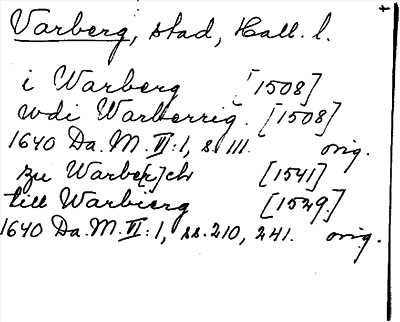 Varberg, stad, Hall. l.
i Warberg [1508]
wdi Warberrig. [1508]
1640 Da. M. II:1, s. 111. orig.
zu Warbe[r]ch [1541]
till Warbierg [1529.]
1640 Da. M. II:1, ss. 210, 241. orig.